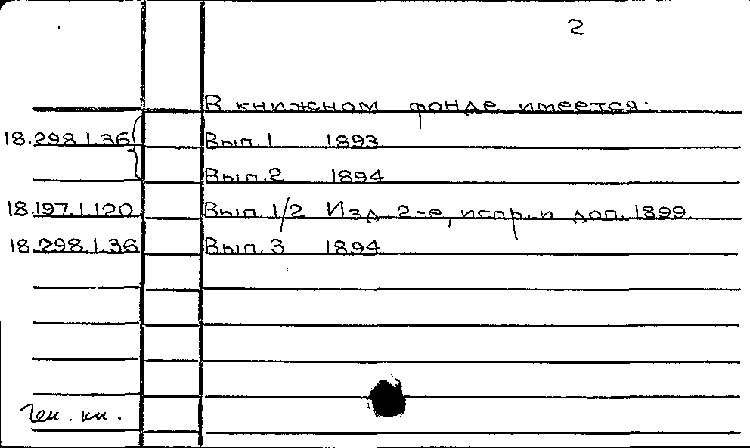 2
В книжном фонде имеется:
18.298.1.36 { Вып. 1 1893
Вып. 2 1894
18.197.1.120 Вып. 1/2 Изд. 2-е, испр. и доп. 1899.
18.298.1.36 Вып. 3 1894
Ген. кн.